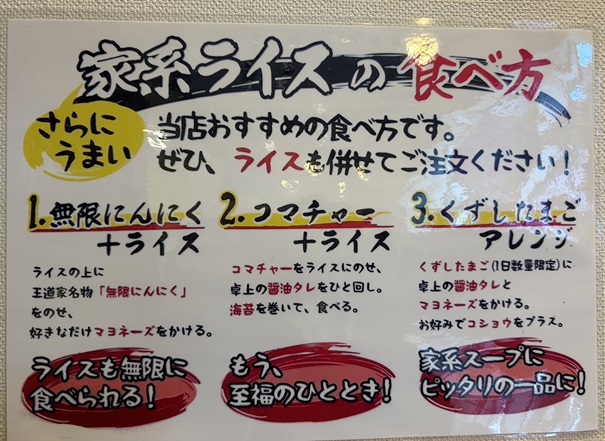 家系ライスの食べ方
さらに
うまい
当店おすすめの食べ方です。
ぜひ、ライスも併せてご注文ください！
1.無限にんにく
＋ライス
ライスの上に
王道家名物「無限にんにく」
をのせ、
好きなだけマヨネーズをかける。
ライスも無限に
食べられる！
2.コマチャー
＋ライス
コマチャーをライスにのせ、
卓上の醤油タレをひと回し。
海苔を巻いて、食べる。
もう、
至福のひととき！
3.くずしたまご
アレンジ
くずしたまご(1日数量限定)に
卓上の醤油タレと
マヨネーズをかける。
お好みでコショウをプラス。
家系スープに
ピッタリの一品に！